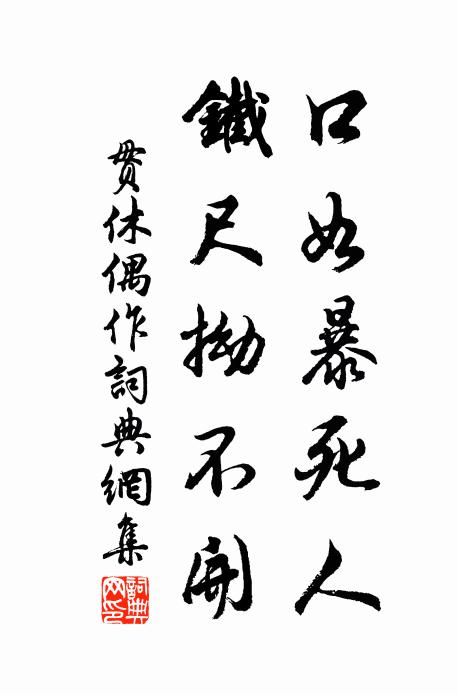 口如暴死人
鐵尺拗不開
貫休偶作詞典網集
詞典網印